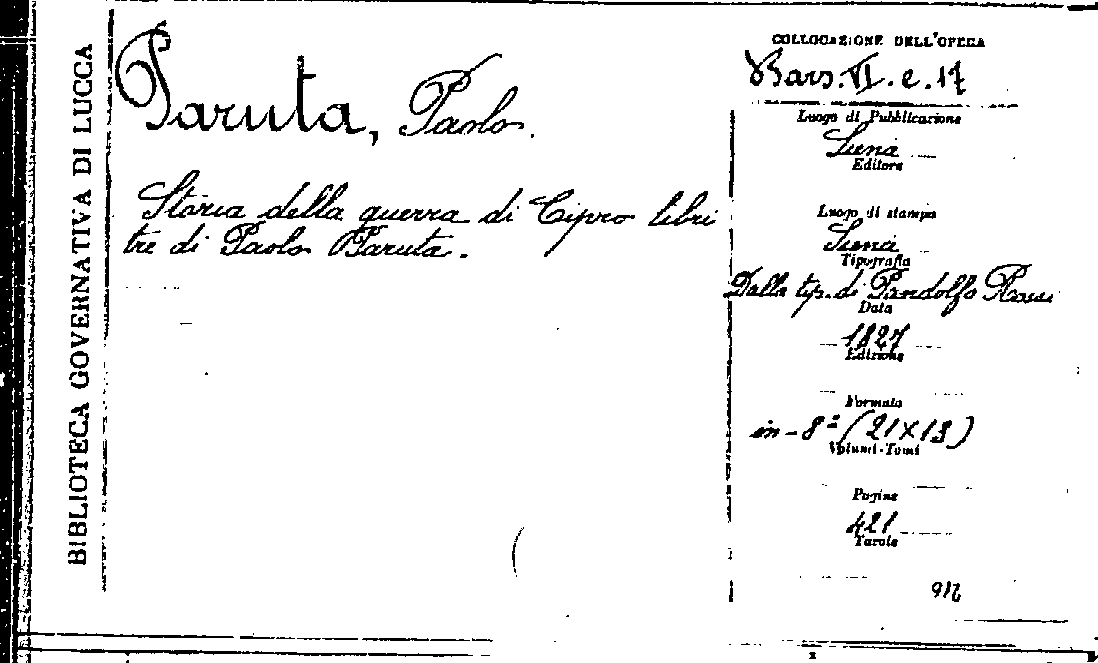 BIBLIOTECA GOVERNATIVA DI LUCCA
Paruta, Paolo.
Storia della guerra di Cipro libri
tre di Paolo Paruta.
COLLOCAZIONE DELL'OPERA
Bars. VI. e. 17
Luogo di Pubblicazione
Siena
Editore
Luogo di stampa
Siena
Tipografia
Dalla tip. di Pandolfo Rossi
Data
1827
Edizione
Formato
in-8º (21×13)
Volumi-Tomi
Pagine
421
Tavole